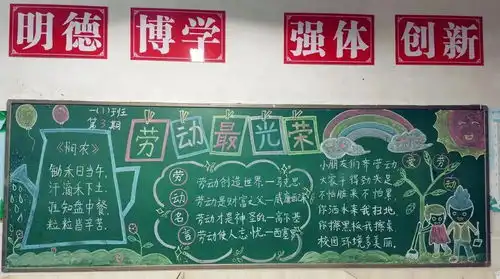 明德 博学 强体 创新
一(1)班
第3期
劳动最光荣
《悯农》
锄禾日当午,
汗滴禾下土。
谁知盘中餐,
粒粒皆辛苦。
劳动名言
劳动创造世界—马克思
劳动是财富之父—威廉
劳动才是神圣的—高尔基
劳动使人忘忧—西塞罗
小朋友们齐劳动
大家干得劲头足
不怕脏来不怕累,
你洒水来我扫地,
你擦黑板我擦桌
校园环境多美丽.
爱劳动